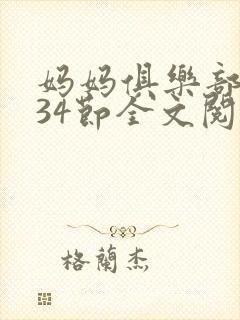 妈妈俱樂部
34節全文閱
格蘭杰